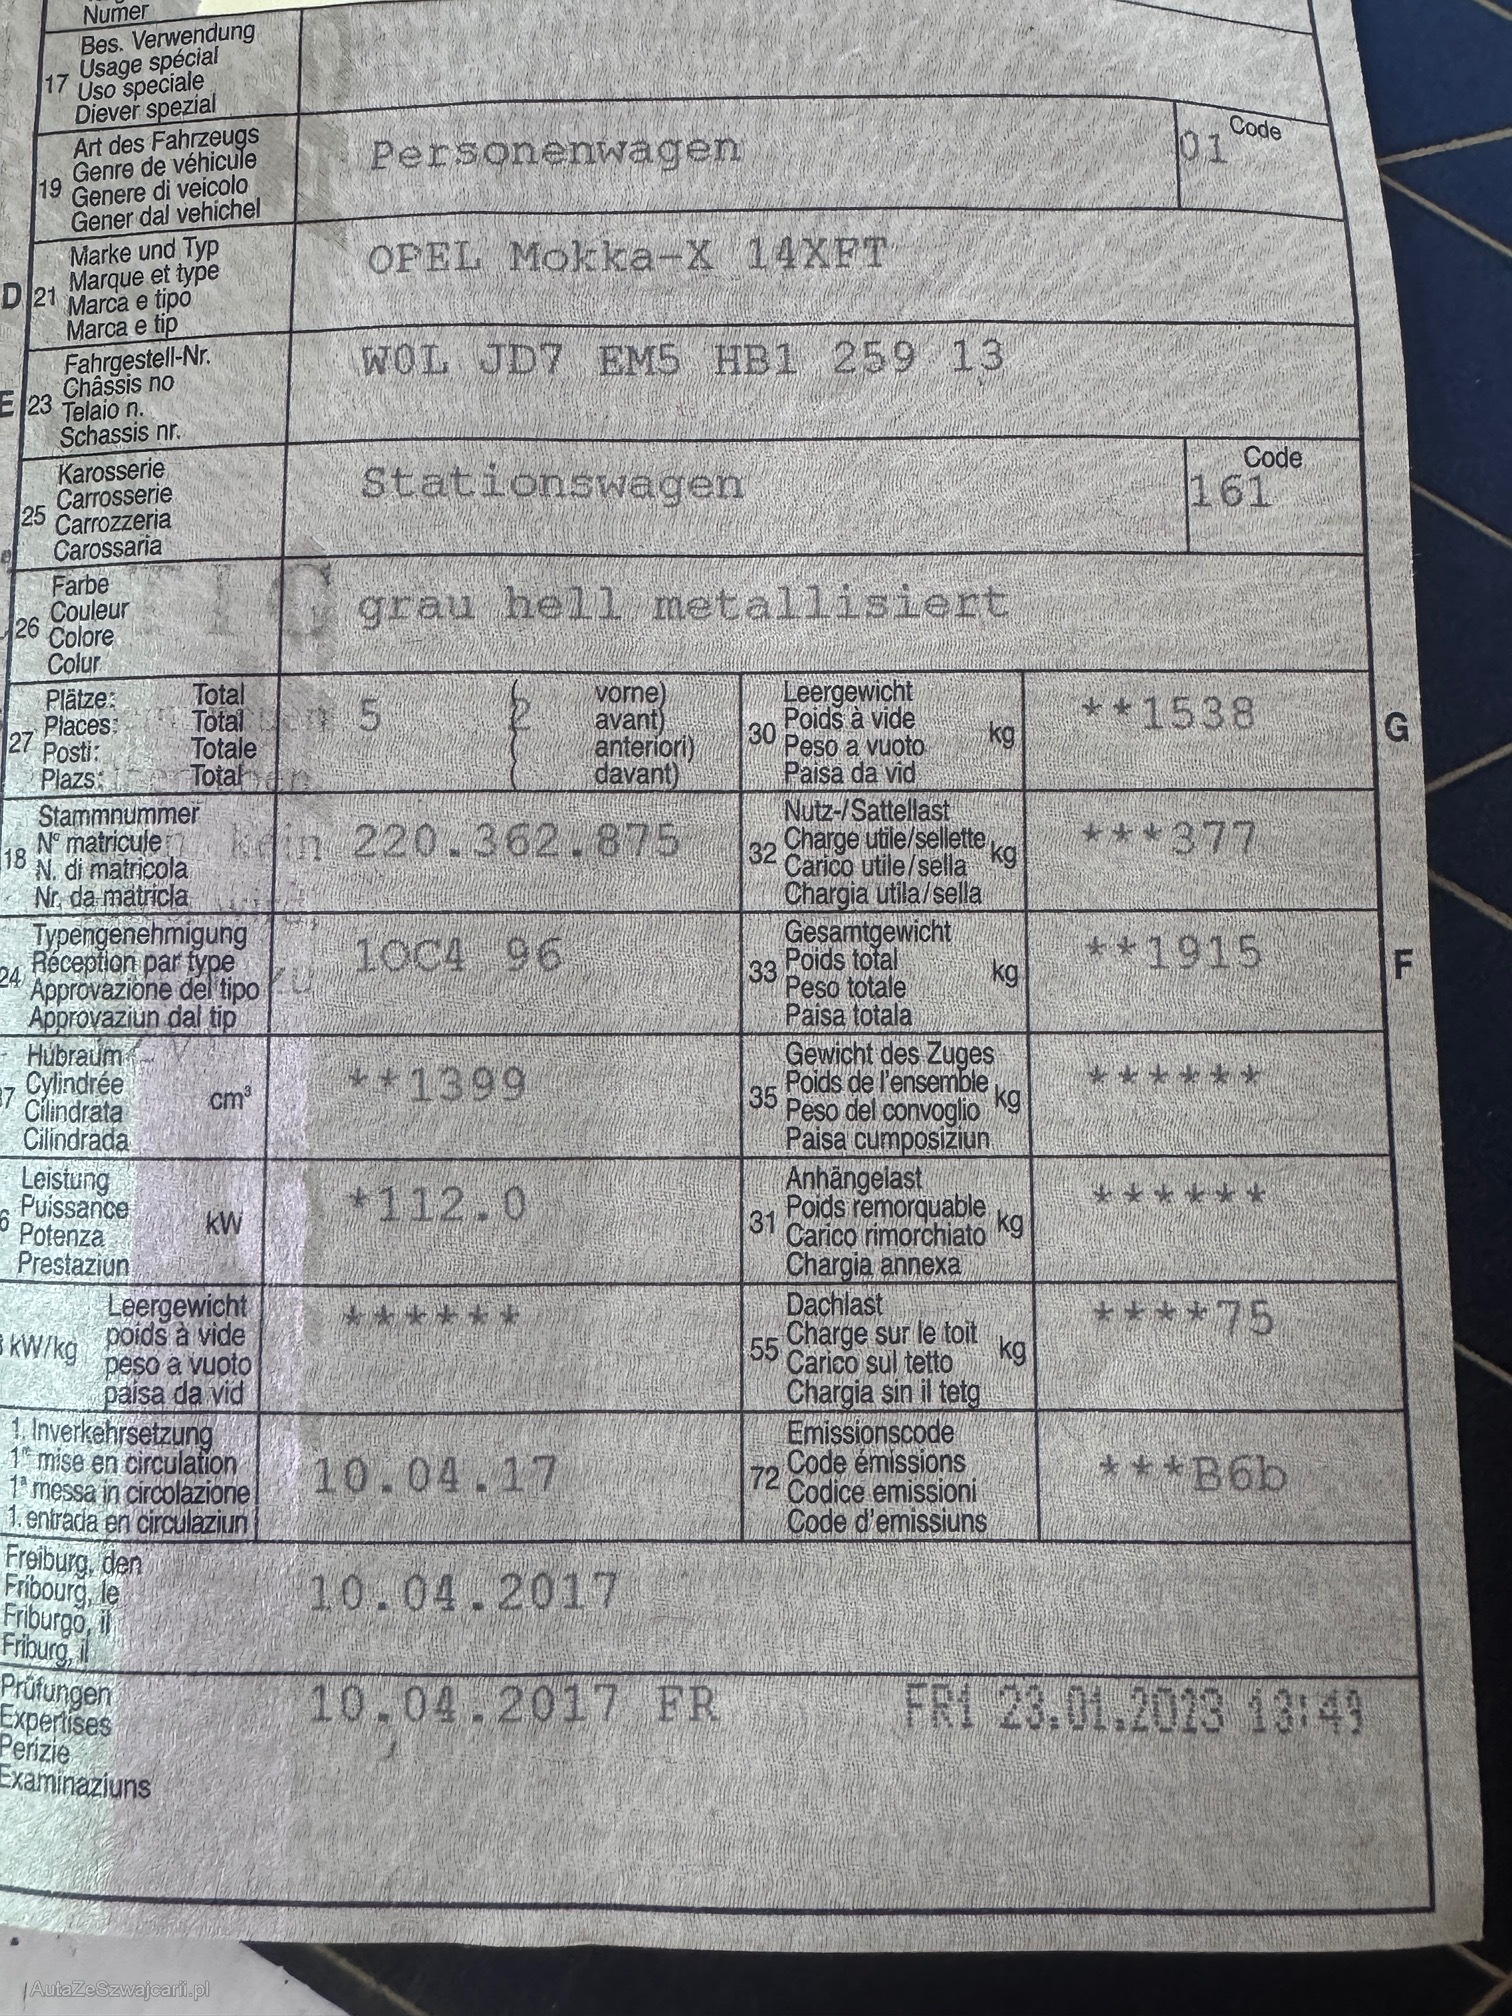 Numer
17 Bes. Verwendung
Usage spécial
Uso speciale
Diever spezial
19 Art des Fahrzeugs
Genre de véhicule
Genere di veicolo
Gener dal vehichel
Personenwagen
Code
01
D 21 Marke und Typ
Marque et type
Marca e tipo
Marca e tip
OPEL Mokka-X 14XFT
E 23 Fahrgestell-Nr.
Châssis no
Telaio n.
Schassis nr.
W0L JD7 EM5 HB1 259 13
25 Karosserie
Carrosserie
Carrozzeria
Carossaria
Stationswagen
Code
161
26 Farbe
Couleur
Colore
Colur
grau hell metallisiert
27 Plätze: Total
Places: Total
Posti: Totale
Plazs: Total
5 ( 2 vorne)
avant)
anteriori)
davant)
30 Leergewicht
Poids à vide
Peso a vuoto
Paisa da vid
kg **1538 G
18 Stammnummer
N° matricule
N. di matricola
Nr. da matricla
kein
220.362.875
32 Nutz-/Sattellast
Charge utile/sellette
Carico utile/sella
Chargia utila/sella
kg ***377
24 Typengenehmigung
Réception par type
Approvazione del tipo
Approvaziun dal tip
1OC4 96
33 Gesamtgewicht
Poids total
Peso totale
Paisa totala
kg **1915 F
7 Hubraum
Cylindrée
Cilindrata
Cilindrada
cm³ **1399
35 Gewicht des Zuges
Poids de l'ensemble
Peso del convoglio
Paisa cumposiziun
kg ******
6 Leistung
Puissance
Potenza
Prestaziun
kW *112.0
31 Anhängelast
Poids remorquable
Carico rimorchiato
Chargia annexa
kg ******
kW/kg Leergewicht
poids à vide
peso a vuoto
paisa da vid
******
55 Dachlast
Charge sur le toit
Carico sul tetto
Chargia sin il tetg
kg ****75
1. Inverkehrsetzung
1re mise en circulation
1a messa in circolazione
1. entrada en circulaziun
10.04.17
72 Emissionscode
Code émissions
Codice emissioni
Code d'emissiuns
***B6b
Freiburg, den
Fribourg, le
Friburgo, il
Friburg, il
10.04.2017
Prüfungen
Expertises
Perizie
Examinaziuns
10.04.2017 FR
FR1 23.01.2023 13:49
AutaZeSzwajcarii.pl